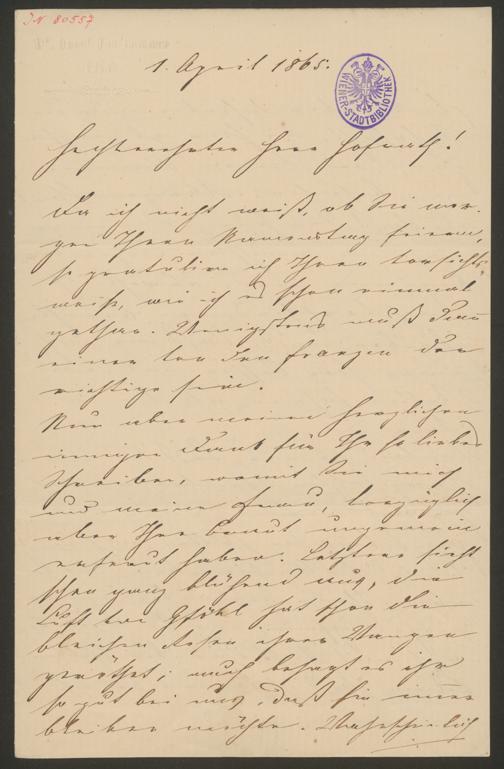 JN 80557
1. April 1865.
WIENER-STADTBIBLIOTHEK
Hochverehrter Herr Hofrath!
Da ich nicht weiß, ob Sie mor-
gen Ihren Namenstag feiern,
so gratulire ich Ihnen vorsichts-
weise, wie ich es schon einmal
gethan. Wenigstens muß Dann
einer von den Franzen der
richtige sein.
Nun aber meinen herzlichen
innigen Dank für Ihr so liebes
Schreiben, womit Sie mich
und meine Frau, vorzüglich
aber Ihre ungemein
erfreut haben. Letztere sieht
schon ganz blühend aus, die
Luft von Gföhl hat schon die
bleichen Rosen ihrer Wangen
geröthet; auch behagt es ihr
so gut bei uns, daß sie immer
bleiben möchte. Wahrscheinlich